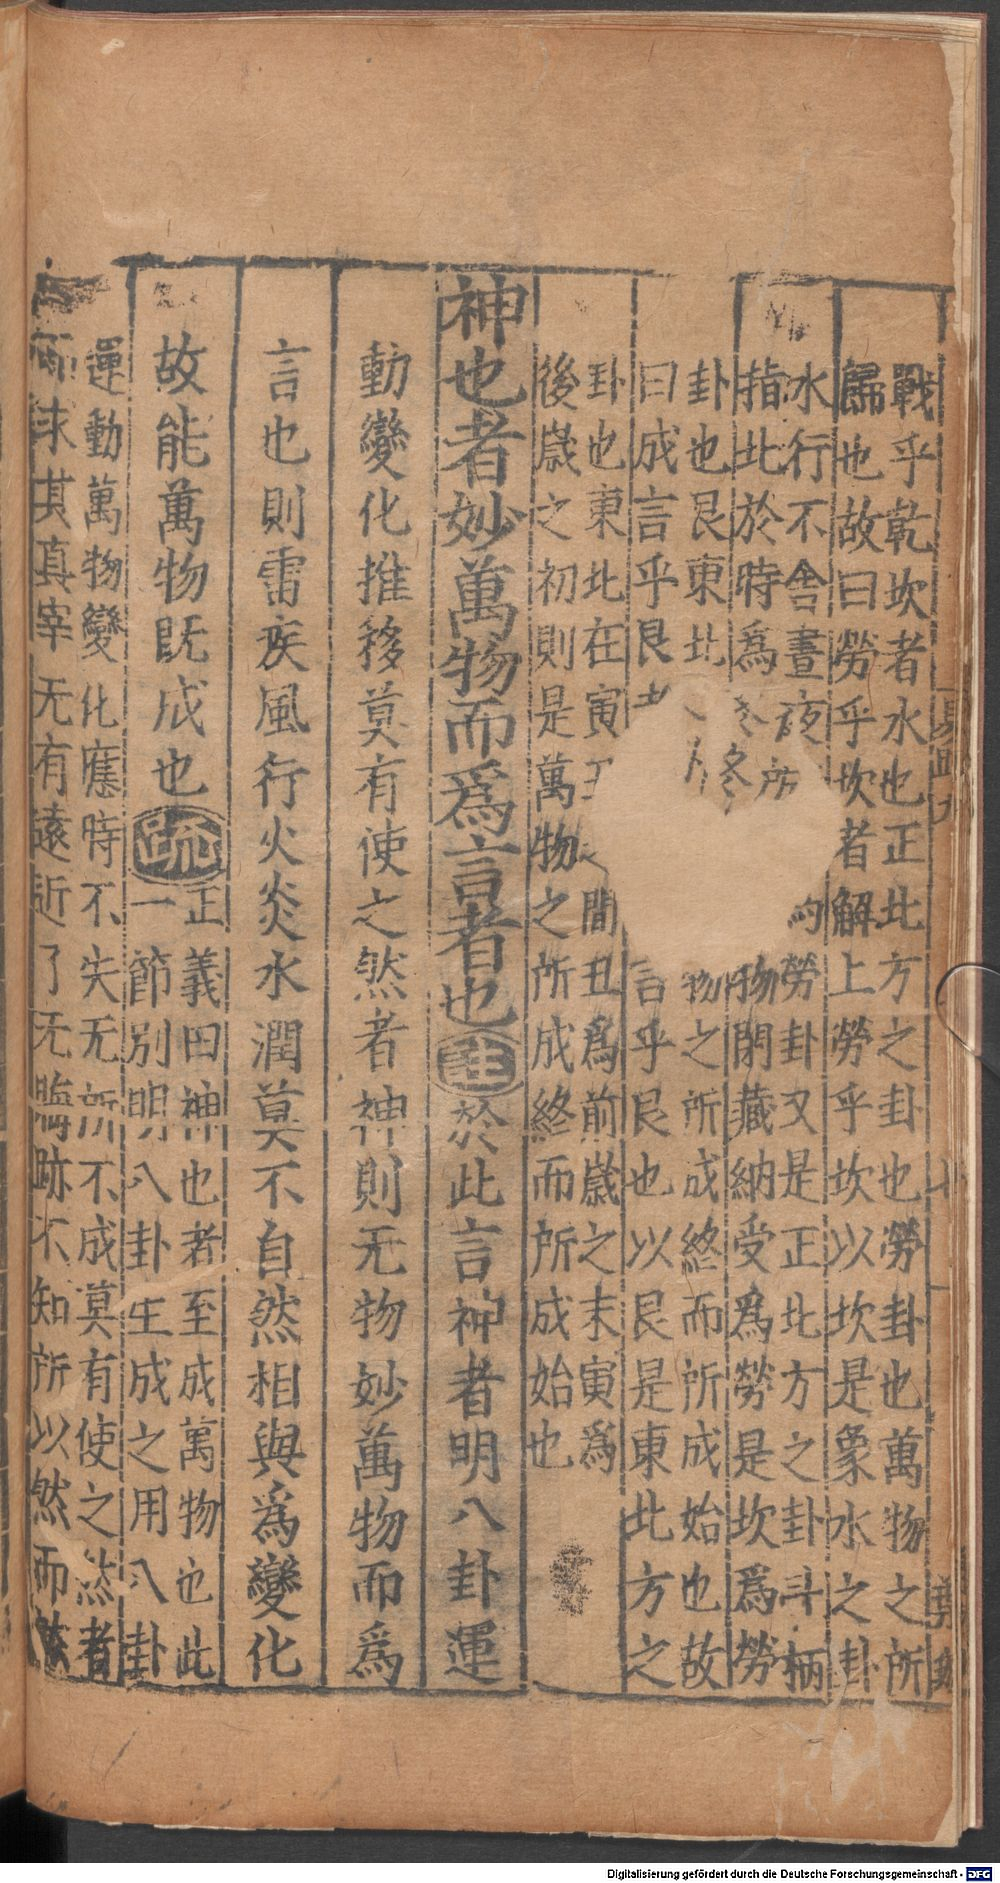 戰乎乾坎者水也正北方之卦也勞卦也萬物之所
歸也故曰勞乎坎者解上勞乎坎以坎是象水之卦
水行不舍晝夜所 勞卦又是正北方之卦斗柄
指北於時爲冬 冬 物閉藏納受爲勞是坎爲勞
卦也艮東北 物之所成終而所成始也故
曰成言乎艮 言乎艮也以艮是東北方之
卦也東北在寅 間丑爲前歲之末寅爲
後歲之初則是萬物之所成終而所成始也
神也者妙萬物而爲言者也註於此言神者明八卦運
動變化推移莫有使之然者神則无物妙萬物而爲
言也則雷疾風行火炎水潤莫不自然相與爲變化
故能萬物既成也疏
正義曰神也者至成萬物也此
一節別明八卦生成之用八卦
運動萬物變化應時不失无所不成莫有使之然者
而求其真宰无有遠近了无眹跡不知所以然而然
Digitalisierung gefördert durch die Deutsche Forschungsgemeinschaft - DFG